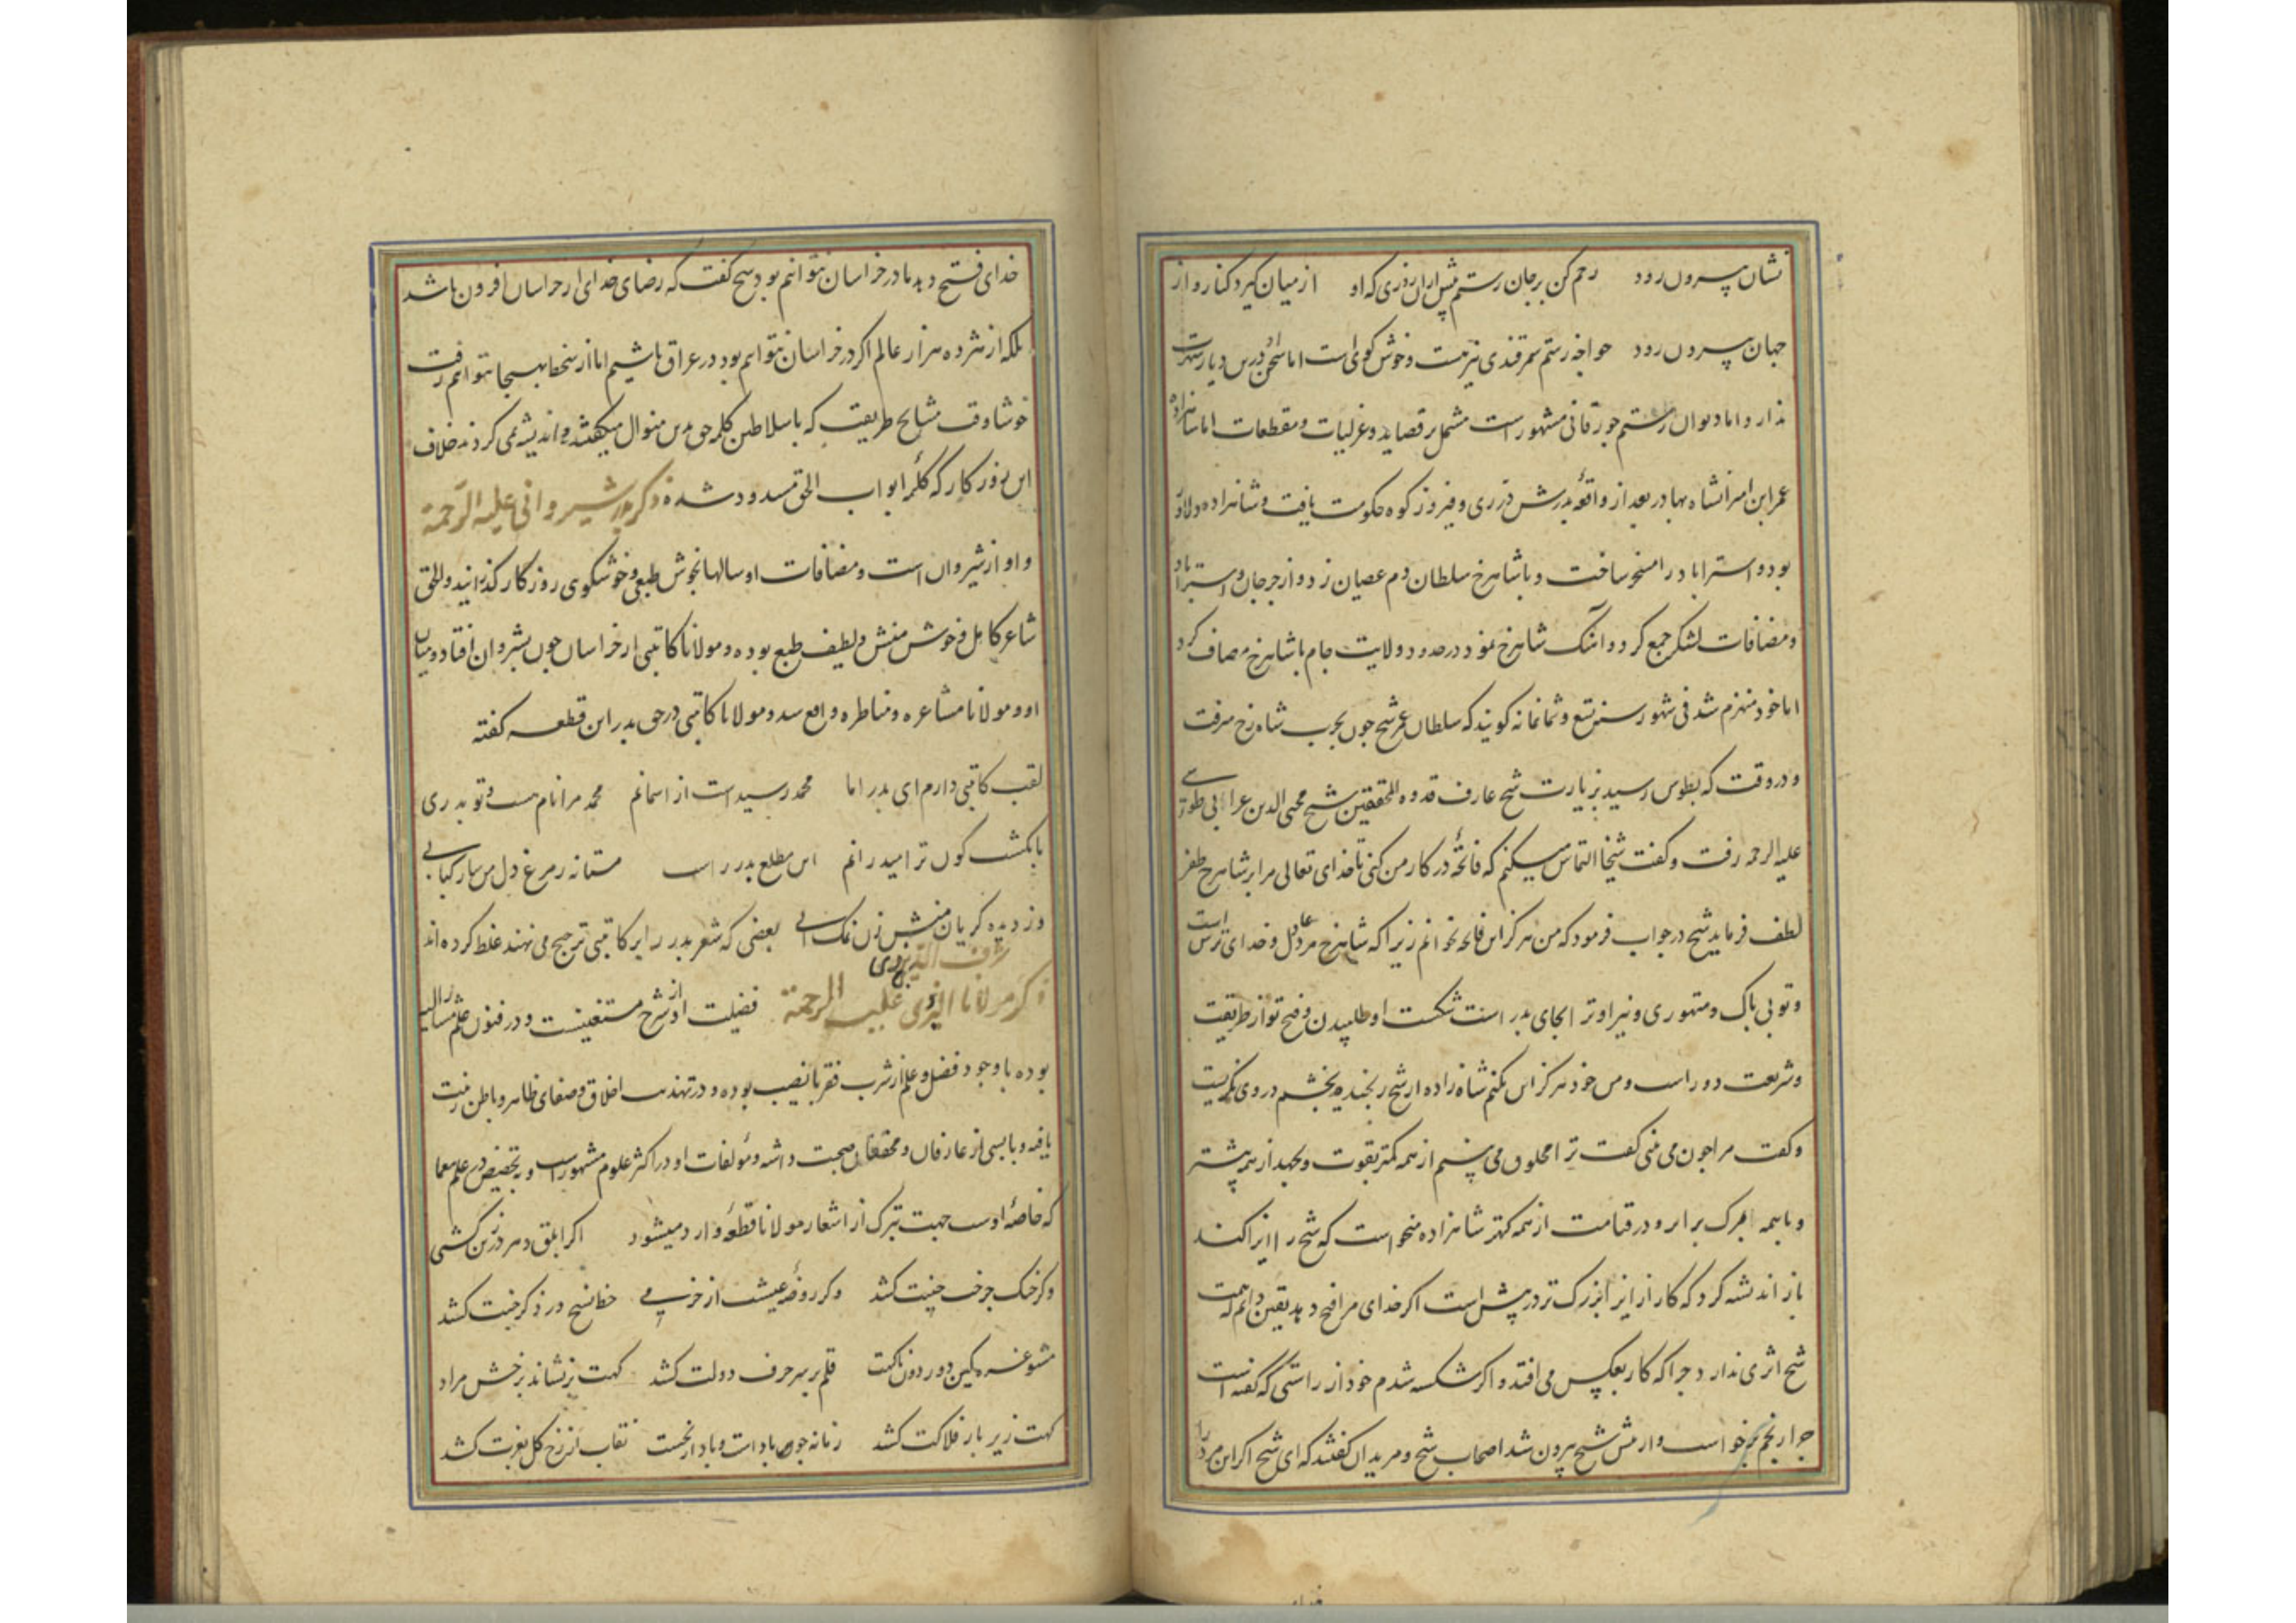 نشان بیرون رود رحم کن بر جان رستم پیش ازان روزی که او از میان گیرد کنار و از
جهان بیرون رود خواجه رستم سمرقندی نیز هست و خوش گوی است اما سخن او درین دیار شهرت
ندارد اما دیوان رستم جورقانی مشهور است مشتمل بر قصاید و غزلیات و مقطعات اما شاهزاده
عمر ابن امیرانشاه بهادر بعد از واقعهٔ پدرش در ری و فیروزکوه حکومت یافت و شاهزاده دلاور
بود و استراباد را مسخر ساخت و با شاهرخ سلطان دم عصیان زد و از جرجان و استراباد
و مضافات لشکر جمع کرد و آهنگ شاهرخ نمود در حدود ولایت جام با شاهرخ مصاف کرد
اما خود منهزم شد فی شهور سنه تسع و ثمانمائه گویند که سلطان عمر شیخ چون بحرب شاه رخ میرفت
و در وقت که بطوس رسید بزیارت شیخ عارف قدوه المحققین شیخ محیی الدین غزالی طوسی
علیه الرحمه رفت و گفت شیخا التماس میکنم که فاتحهٔ در کار من کنی تا خدای تعالی مرا بر شاهرخ ظفر
لطف فرماید شیخ در جواب فرمود که من هرگز این فاتحه نخوانم زیرا که شاهرخ مرد عادل و خدای ترس است
و تو بی باک و متهوری و نیز او ترا بجای پدر است شکست او طلبیدن و فتح تو از طریقت
و شریعت دور است و من خود هرگز این نکنم شاه زاده از شیخ رنجیده بخشم در وی نگریست
و گفت مرا چون می بینی گفت ترا مخلوق می بینم از همه کمتر بقوت و بجهد از همه بیشتر
و با همه بمرگ برابر و در قیامت از همه کهتر شاهزاده میخواست که شیخ را ایذا کند
باز اندیشه کرد که کار از ایذا بزرگ تر در پیش است اگر خدای مرا فتح دهد یقین دانم که همت
شیخ اثری ندارد چرا که کار بعکس می افتد و اگر شکسته شدم خود از راستی که گفته است
چرا رنجم برخواست و از پیش شیخ بیرون شد اصحاب شیخ و مریدان گفتند که ای شیخ اگر این مرد را
خدای فتح دهد ما در خراسان نتوانیم بود شیخ گفت که رضای خدای از خراسان افزون باشد
بلکه از هژده هزار عالم اگر در خراسان نتوانیم بود در عراق باشیم اما از سخط بهیچ جا نتوانیم رفت
خوشا وقت مشایخ طریقت که با سلاطین کلمه حق بدین منوال میگفتند و اندیشه نمی کردند خلاف
این روزگار که کلمهٔ ابواب الحق مسدود شده ذکر بدر شیروانی علیه الرحمة
و او از شیروان است و مضافات او سالها بخوش طبعی و خوشگوی روزگار گذرانید و للحق
شاعر کامل و خوش منش و لطیف طبع بوده و مولانا کاتبی از خراسان چون بشروان افتاد و میان
او و مولانا مشاعره و مناظره واقع شد و مولانا کاتبی در حق بدر این قطعه گفته
لقب کاتبی دارم ای بدر اما محمد رسیدست از اسمانم محمد مرا نام هست و تو بدری
بانگشت کون ترا میدرانم این مطلع بدر راست مستانه ز مرغ دل من ساز کبابی
وز دیده گریان منش زن نمک آبی بعضی که شعر بدر را بر کاتبی ترجیح می نهند غلط کرده اند
ذکر مولانا شرف الدین علی یزدی علیه الرحمة فضیلت او از شرح مستغنیست و در فنون علم مشار الیه
بوده با وجود فضل و علم از شرب فقر با نصیب بوده و در تهذیب اخلاق و صفای ظاهر و باطن زینت
یافته و با بسی از عارفان و محققان صحبت داشته و مؤلفات او در اکثر علوم مشهور است و بتخصیص در علم معما
که خاصهٔ اوست جهت تبرک از اشعار مولانا قطعهٔ وارد میشود اگر ابلق دهر در زین کشی
وگر خنگ چرخت جنیبت کشد وگر روضهٔ عیشت از خرمی خط نسخ در ذکر جنت کشد
مشو غره کین دور دون ناگهت قلم بر سر حرف دولت کشد گهت بر نشاند برخش مراد
گهت زیر بار فلاکت کشد زمانه چون بادست و باد از نخست نقاب از رخ گل بغزت کشد